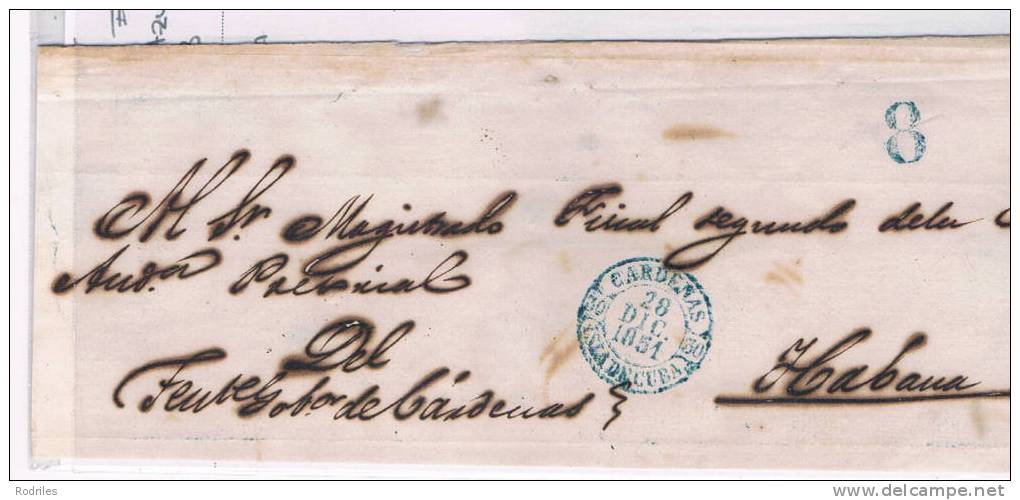 8
Al Sr. Magistrado Fiscal segundo de la
Auda. Pretorial
CARDENAS
28
DIC
1851
ISLA DE CUBA
Del
Tente Gobor de Cárdenas
Habana
Rodriles
www.delcampe.net